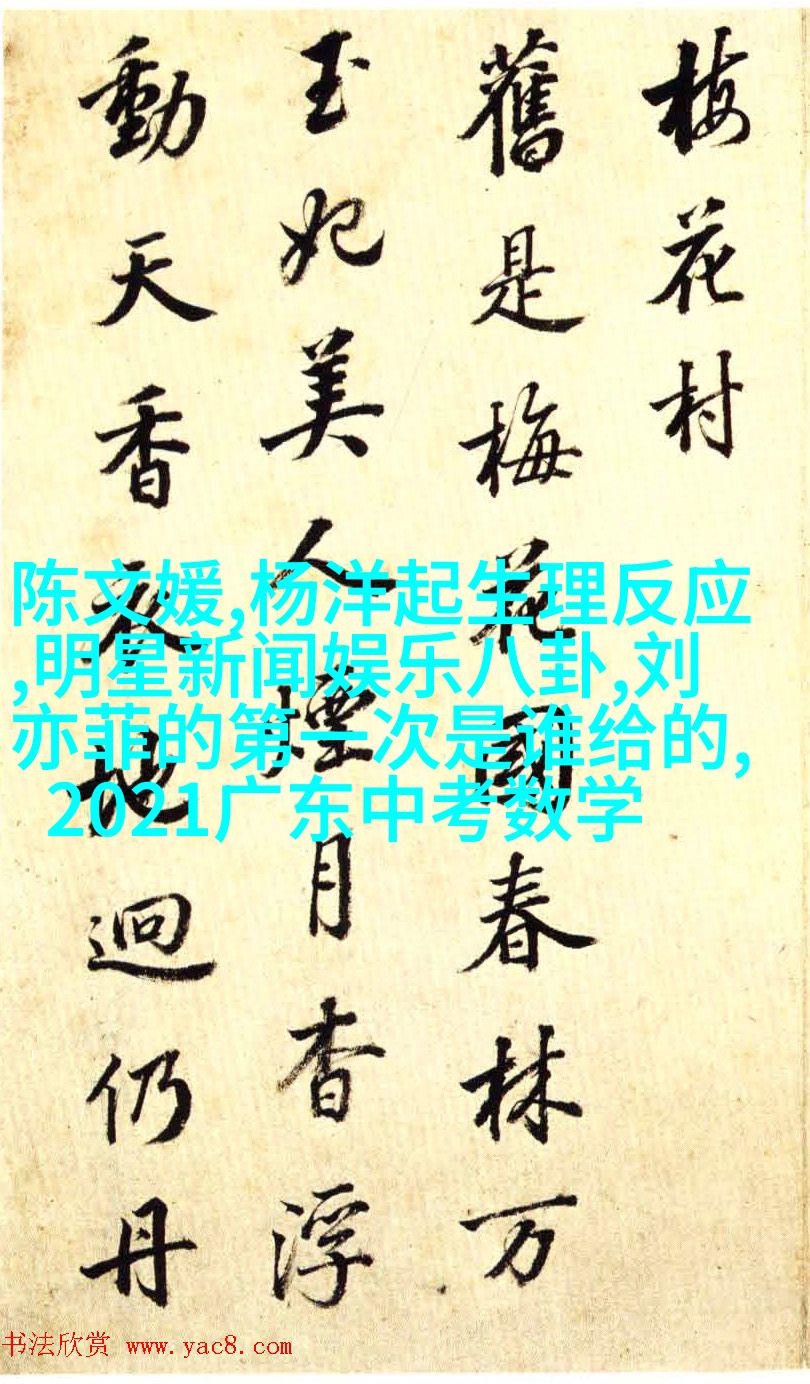 梅花村
舊是梅花國春林万
玉妃美人煙月香浮
動天香夜
迥仍丹
陈文媛,杨洋起生理反应
,明星新闻娱乐八卦,刘
亦菲的第一次是谁给的,
2021广东中考数学
书法欣赏 www.yac8.com